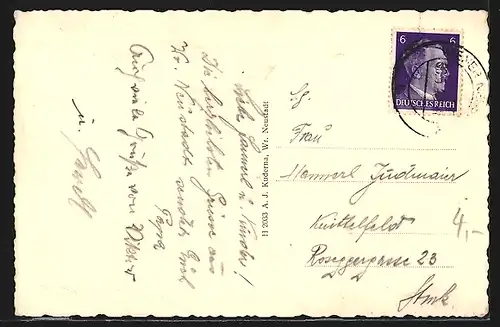 Liebe Hannerl u. Kinder!
Die herzlichsten Grüsse aus
Wr. Neustadt sendet Euch
Papa
Auch viele Grüße von Viktor
u.
H 2033 A. J. Kuderna, Wr. Neustadt
6 6
DEUTSCHES REICH
Frau
Hannerl Judmaier
Knittelfeld
Roseggergasse 23
Stmk
4,-